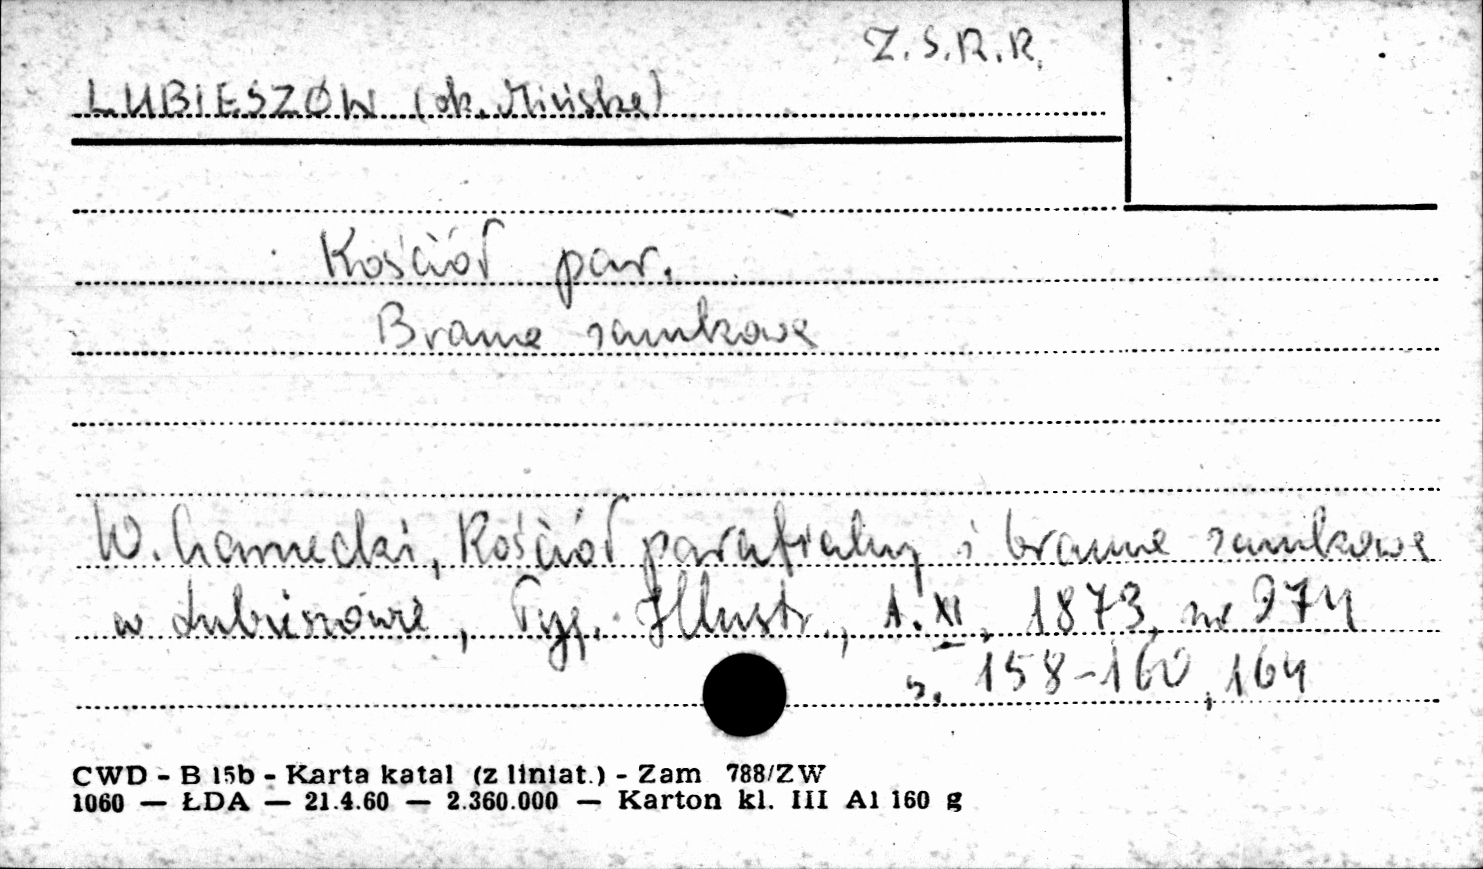 Z.S.R.R.
LUBIESZÓW (ok. Mińska)
Kościół par.
Brama zamkowa
W. Czarnecki, Kościół parafialny i brama zamkowa
w Lubieszowie, Tyg. Illustr., t. XI, 1873, nr 274
s. 158-160, 164
CWD - B 15b - Karta katal (z liniat.) - Zam 788/ZW
1060 — ŁDA — 21.4.60 — 2.360.000 — Karton kl. III A1 160 g